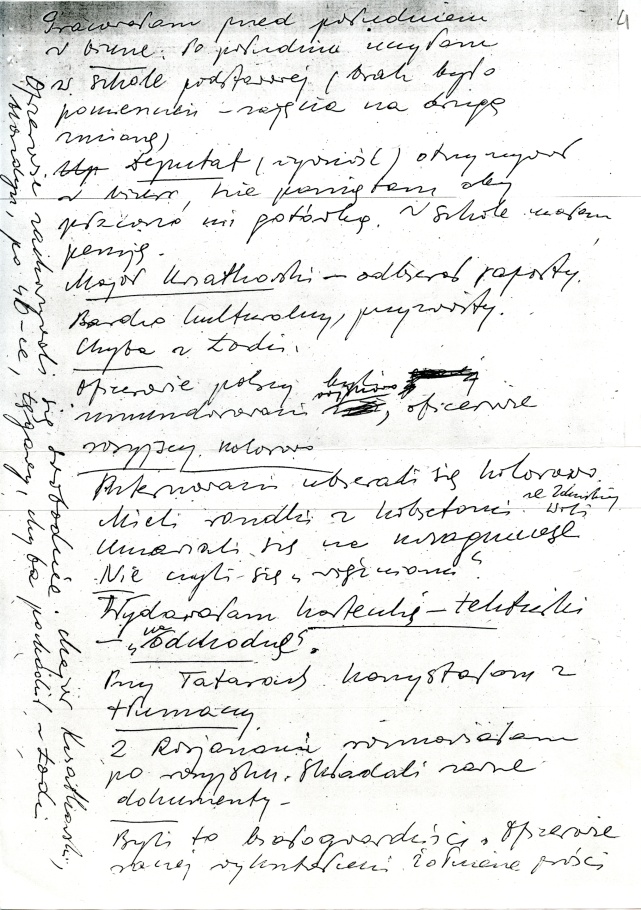 4
Pracowałam przed południem
w biurze. Po południu uczyłam
w szkole podstawowej (brak było
pomieszczeń – zajęcia na drugą
zmianę)
Deputat (żywność) otrzymywał
w biurze, nie pamiętam aby
płacono mi gotówką. W szkole miałam
pensję.
Major Kwiatkowski – odbierał raporty.
Bardzo kulturalny, przyzwoity.
Chyba z Łodzi.
Oficerowie polscy byli
umundurowani, oficerowie
rosyjscy kolorowo
Internowani ubierali się kolorowo
Mieli randki z kobietami ze Zduńskiej
Woli
Umawiali się na
Nie czuli się „więźniami”
Wydawałam karteczkę – tekturki
– „na odchodnę”.
Przy Tatarach korzystałam z
tłumaczy
Z Rosjanami rozmawiałam
po rosyjsku. Składali różne
dokumenty –
Byli to białogwardziści. Oficerowie
raczej wykształceni żołnierze prości
Oficerowie zachowywali się swobodnie. Major Kwiatkowski,
po 40-ce, tęgawy, chyba pochodził z Łodzi.